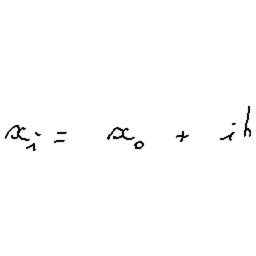 x_i = x_0 + ih